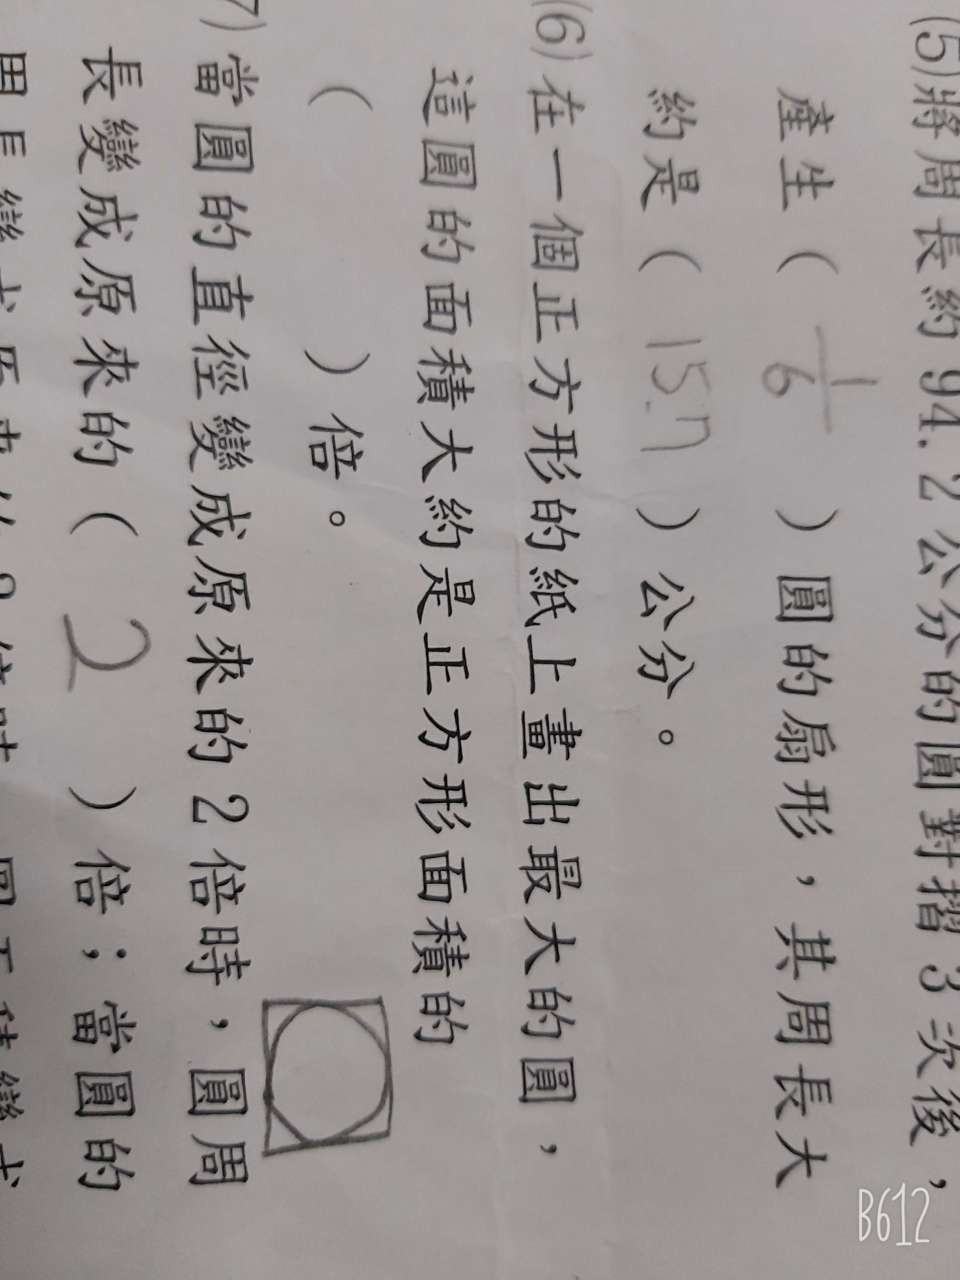 (5)將周長約94.2公分的圓對摺3次後，
產生（ 1/6 ）圓的扇形，其周長大
約是（ 15.7 ）公分。
(6)在一個正方形的紙上畫出最大的圓，
這圓的面積大約是正方形面積的
（ ）倍。
7)當圓的直徑變成原來的2倍時，圓周
長變成原來的（ 2 ）倍；當圓的
B612